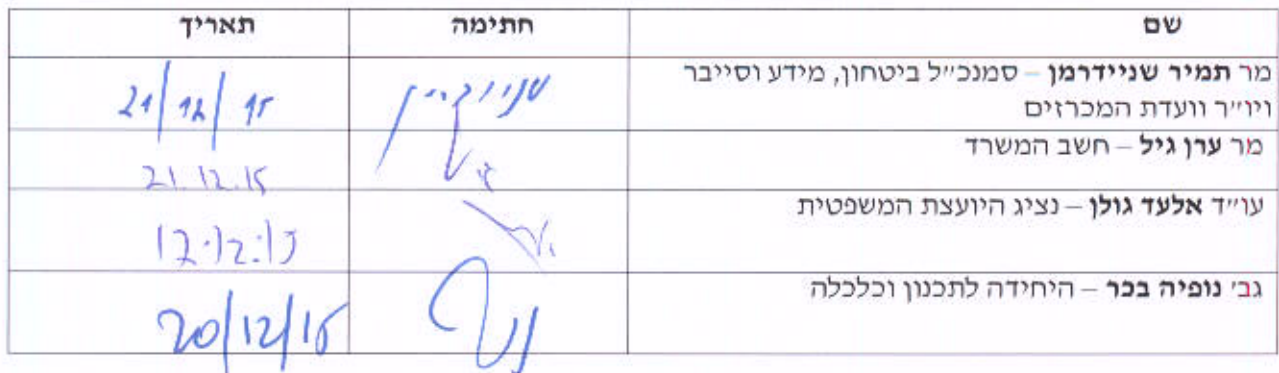 שם חתימה תאריך
מר תמיר שניידרמן – סמנכ״ל ביטחון, מידע וסייבר
ויו״ר וועדת המכרזים
21/12/15
מר ערן גיל – חשב המשרד
21.12.15
עו״ד אלעד גולן – נציג היועצת המשפטית
17.12.15
גב׳ נופיה בכר – היחידה לתכנון וכלכלה
20/12/15